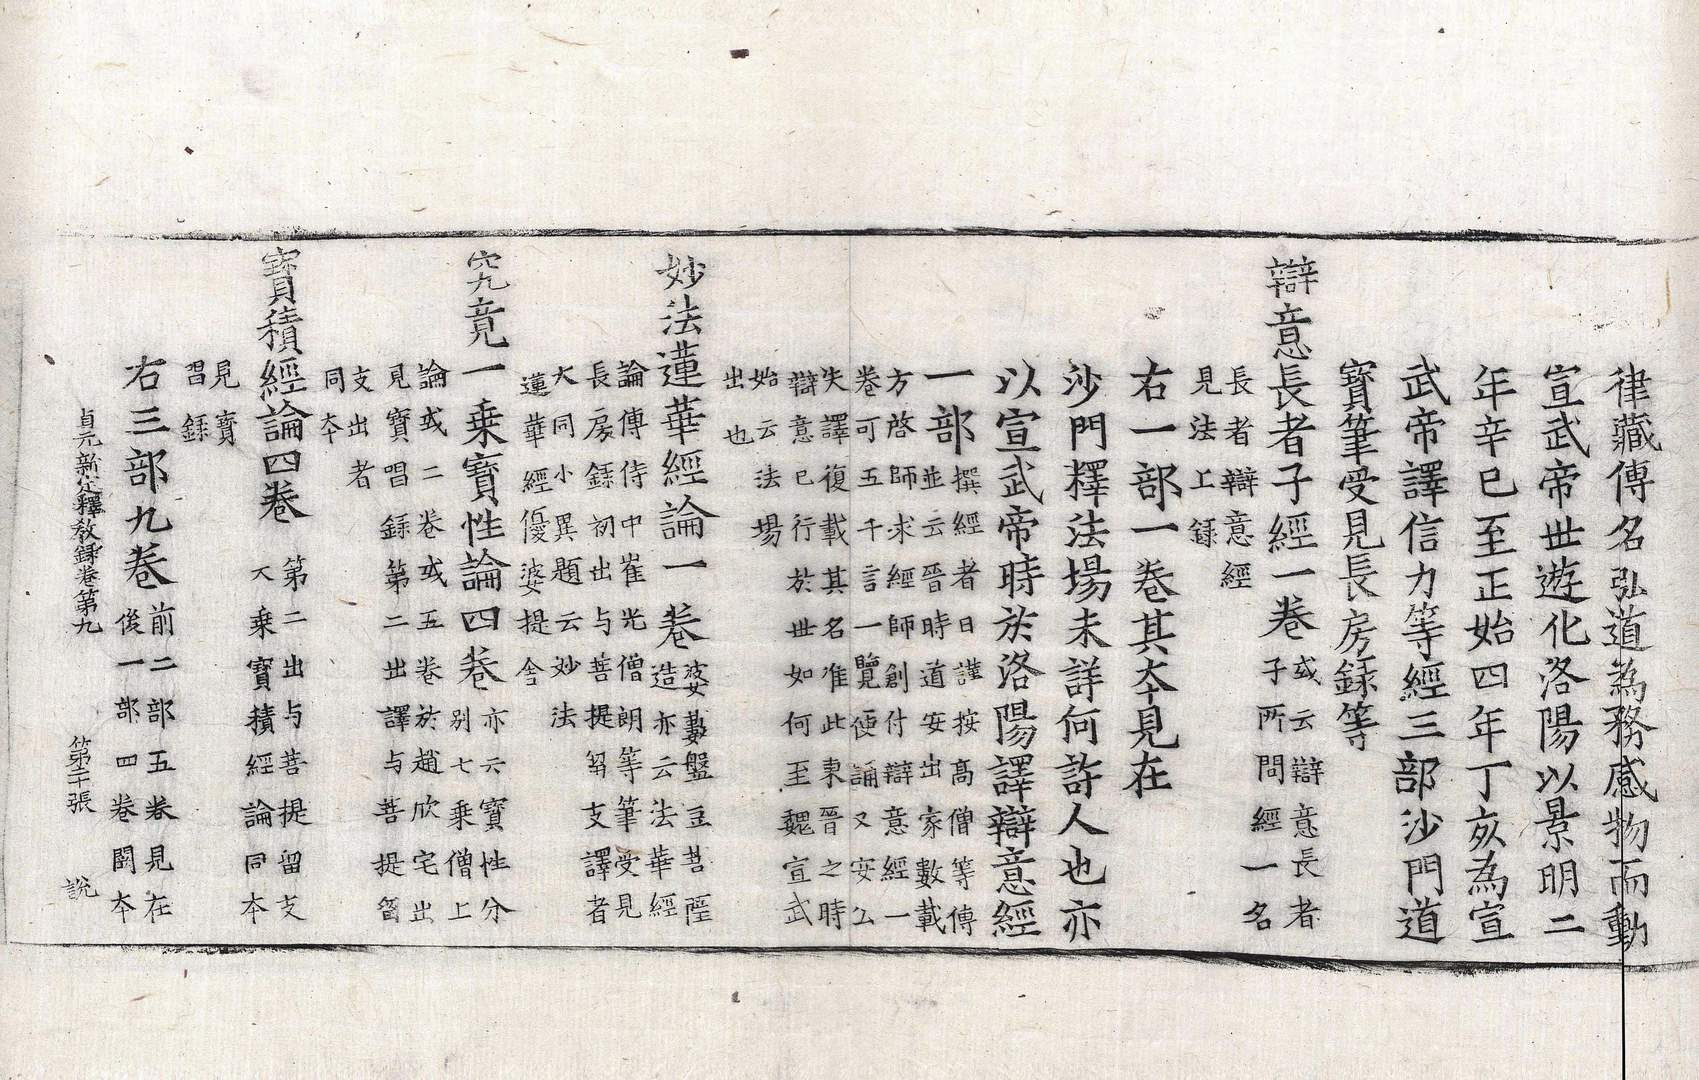 律藏傳名弘道為務感物而動
宣武帝世遊化洛陽以景明二
年辛巳至正始四年丁亥為宣
武帝譯信力等經三部沙門道
寶筆受見長房錄等
辯意長者子經一卷 或云辯意長者
子所問經一名
長者辯意經
見法上錄
右一部一卷其本見在
沙門釋法場未詳何許人也亦
以宣武帝時於洛陽譯辯意經
一部 撰經者曰謹按高僧等傳
並云晉時道安出家數載
方啓師求經師創付辯意經一
卷可五千言一覽便誦又安公
失譯復載其名准此東晉之時
辯意已行於世如何至魏宣武
始云法場
出也
妙法蓮華經論一卷 婆藪盤豆菩薩
造亦云法華經
論傳侍中崔光僧朗等筆受見
長房錄初出与菩提留支譯者
大同小異題云妙法
蓮華經優婆提舍
究竟一乘寶性論四卷 亦云寶性分
別七乘僧上
論或二卷或五卷於趙欣宅出
見寶唱錄第二出譯与菩提留
支出者
同本
寶積經論四卷 第二出与菩提留支
大乘寶積經論同本
見寶
唱錄
右三部九卷 前二部五卷見在
後一部四卷闕本
貞元新定釋教錄卷第九 第二十張 說